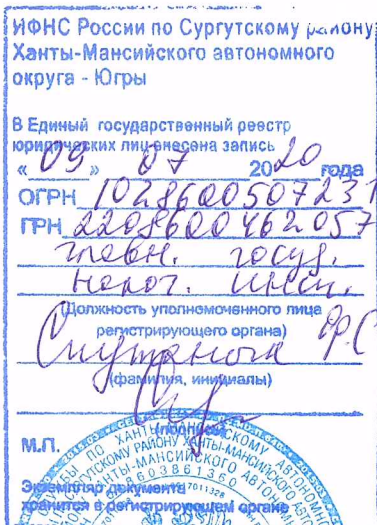 ИФНС России по Сургутскому району
Ханты-Мансийского автономного
округа - Югры
В Единый государственный реестр
юридических лиц внесена запись
« 09 » 07 2020 года
ОГРН 1028600507231
ГРН 2208600462057
главн. госуд.
налог. инсп.
(Должность уполномоченного лица
регистрирующего органа)
Ф.С
(фамилия, инициалы)
(подпись)
М.П.
Экземпляр документа
хранится в регистрирующем органе